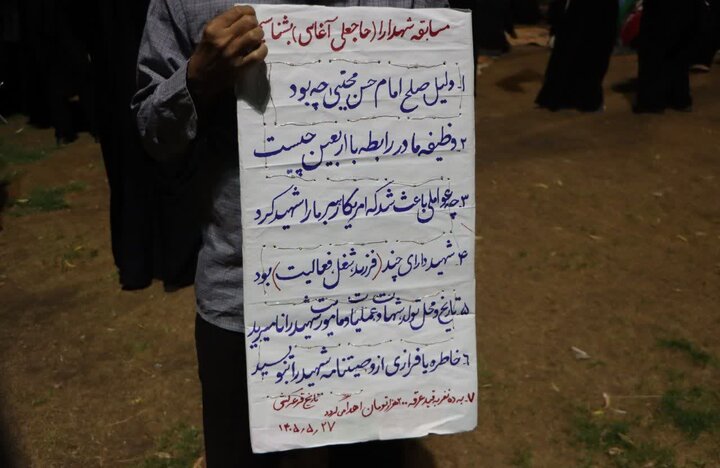 مسابقه شهدا را (حاجعلی آغاسی) بشناسیم
۱ دلیل صلح امام حسن مجتبی چه بود
۲ وظیفه ما در رابطه با اربعین چیست
۳ چه عواملی باعث شد که امریکا رهبر ما را شهید کرد
۴ شهید دارای چند (فرزند، شغل، فعالیت) بود
۵ تاریخ و محل تولد، شهادت و عملیات و ماموریت شهید را نام ببرید
۶ خاطره یا فرازی از وصیتنامه شهید را بنویسید
۷. به ده نفر به قید قرعه ۲۰۰ هزار تومان اهدا می شود تاریخ قرعه کشی
۱۴۰۵.۵.۲۷